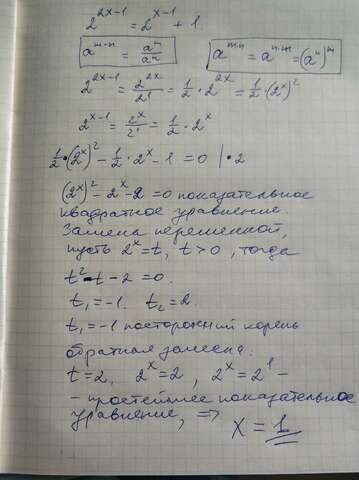 2^(2x-1) = 2^(x-1) + 1
a^(m-n) = a^m/a^n
a^(m·n) = a^(n·m) = (a^n)^m
2^(2x-1) = 2^(2x)/2^1 = 1/2 · 2^(2x) = 1/2 · (2^x)^2
2^(x-1) = 2^x/2^1 = 1/2 · 2^x
1/2 · (2^x)^2 - 1/2 · 2^x - 1 = 0 | · 2
(2^x)^2 - 2^x - 2 = 0 показательное
квадратное уравнение.
Замена переменной,
пусть 2^x = t, t > 0, тогда
t^2 - t - 2 = 0.
t₁ = -1. t₂ = 2.
t₁ = -1 посторонний корень
обратная замена:
t = 2, 2^x = 2, 2^x = 2^1 -
- простейшее показательное
уравнение, ⇒
x = 1